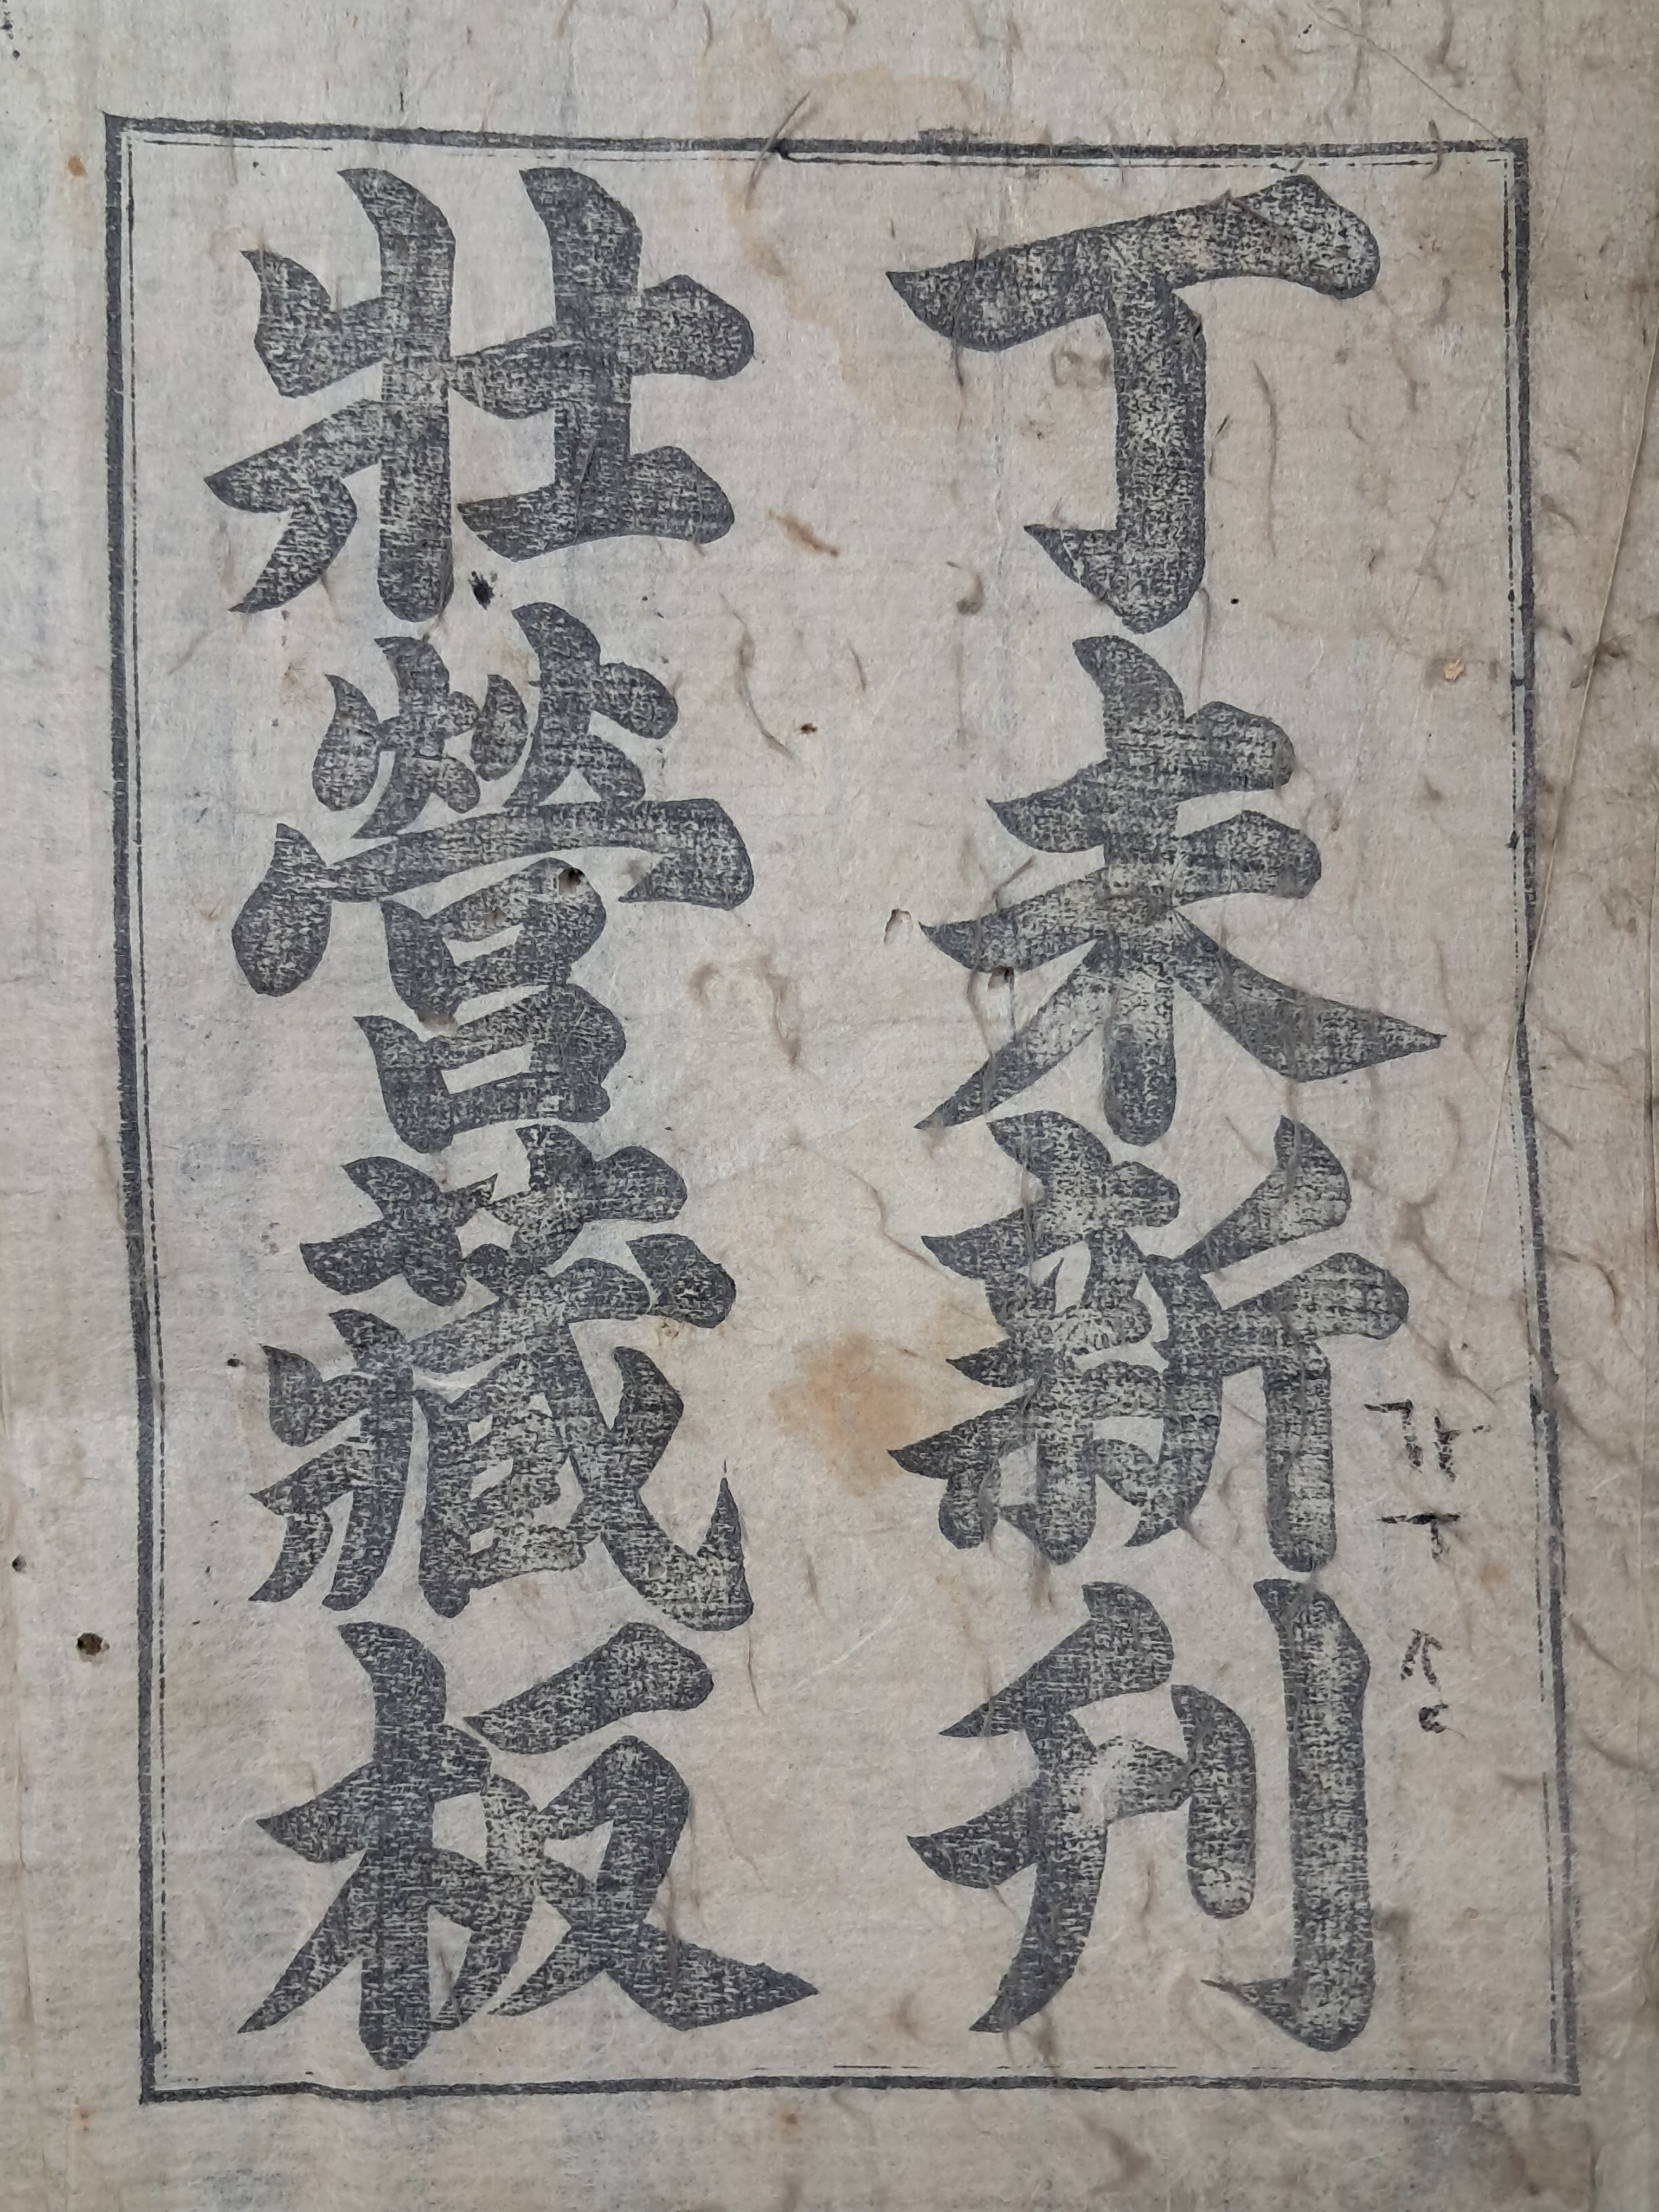 丁未新刊
壯營藏板